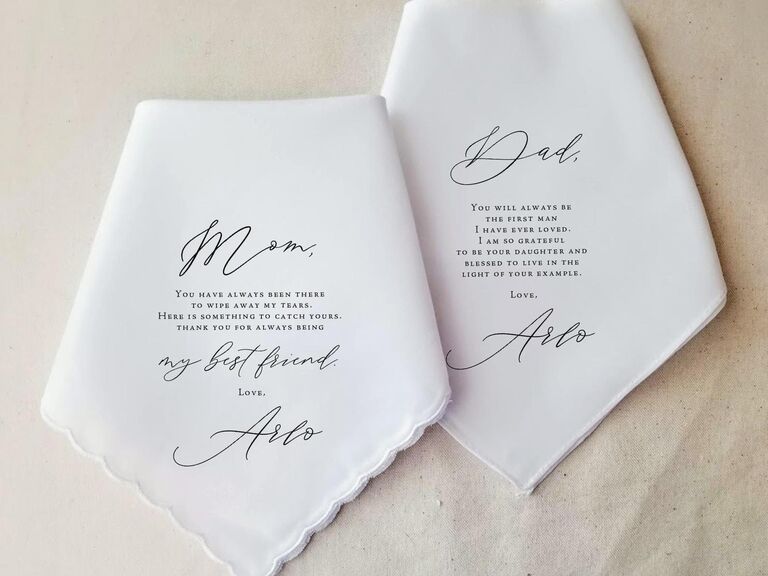 Mom,
You have always been there
to wipe away my tears.
Here is something to catch yours.
thank you for always being
my best friend.
Love,
Arlo
Dad,
You will always be
the first man
I have ever loved.
I am so grateful
to be your daughter and
blessed to live in the
light of your example.
Love,
Arlo